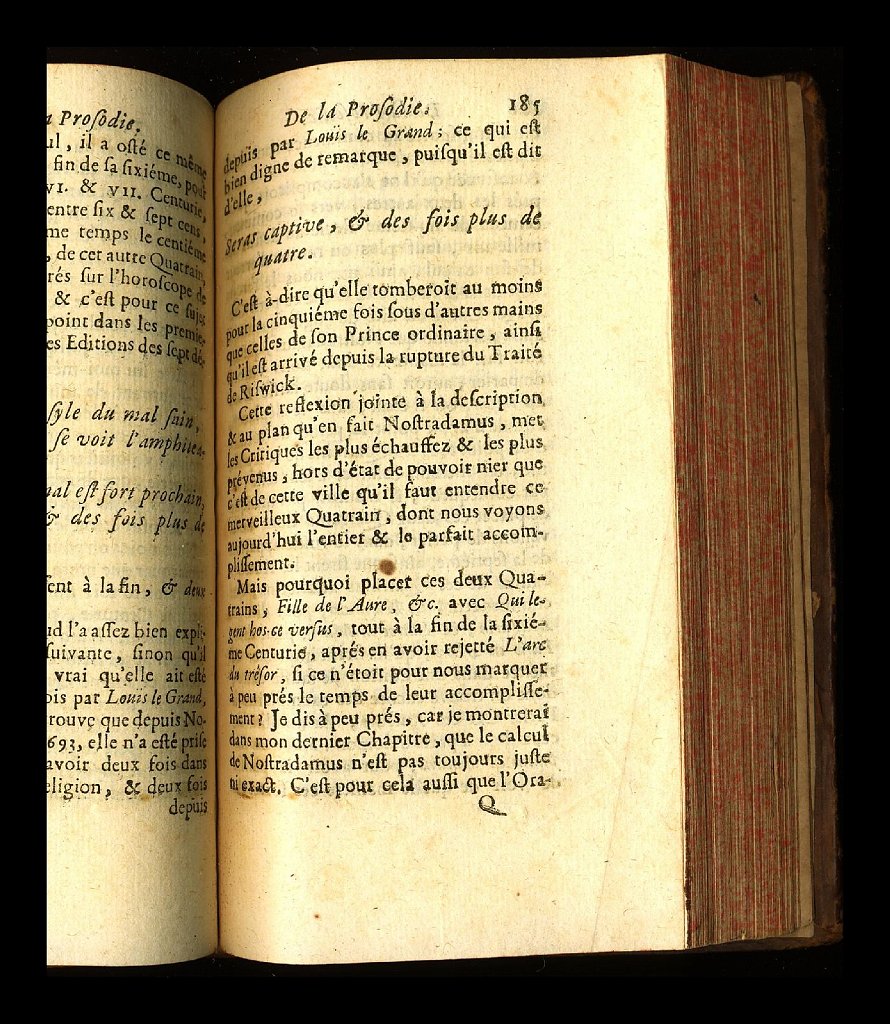 a Prosodie.
ul, il a osté ce même
fin de sa sixiéme, pour
VI. & VII. Centurie,
entre six & sept cens,
me temps le centiéme
, de cet autre Quatrain,
rés sur l'horoscope de
& c'est pour ce sujet
point dans les premie-
es Editions des sept dé-
syle du mal sain,
se voit l'amphitea-
al est fort prochain,
& des fois plus de
sent à la fin, & deux
d l'a assez bien expli-
suivante, sinon qu'il
vrai qu'elle ait esté
ois par Louis le Grand,
rouve que depuis No-
693, elle n'a esté prise
avoir deux fois dans
eligion, & deux fois
depuis
De la Prosodie. 185
depuis par Louis le Grand; ce qui est
bien digne de remarque, puisqu'il est dit
d'elle,
Seras captive, & des fois plus de
quatre.
C'est à-dire qu'elle tomberoit au moins
pour la cinquiéme fois sous d'autres mains
que celles de son Prince ordinaire, ainsi
qu'il est arrivé depuis la rupture du Traité
de Riswick.
Cette reflexion jointe à la description
& au plan qu'en fait Nostradamus, met
les Critiques les plus échauffez & les plus
prévenus, hors d'état de pouvoir nier que
c'est de cette ville qu'il faut entendre ce
merveilleux Quatrain, dont nous voyons
aujourd'hui l'entier & le parfait accom-
plissement.
Mais pourquoi placer ces deux Qua-
trains, Fille de l'Aure, &c. avec Qui le-
gent hos-ce versus, tout à la fin de la sixié-
me Centurie, aprés en avoir rejetté L'arc
du trésor, si ce n'étoit pour nous marquer
à peu prés le temps de leur accomplisse-
ment? Je dis à peu prés, car je montrerai
dans mon dernier Chapitre, que le calcul
de Nostradamus n'est pas toujours juste
ni exact. C'est pour cela aussi que l'Ora-
Q